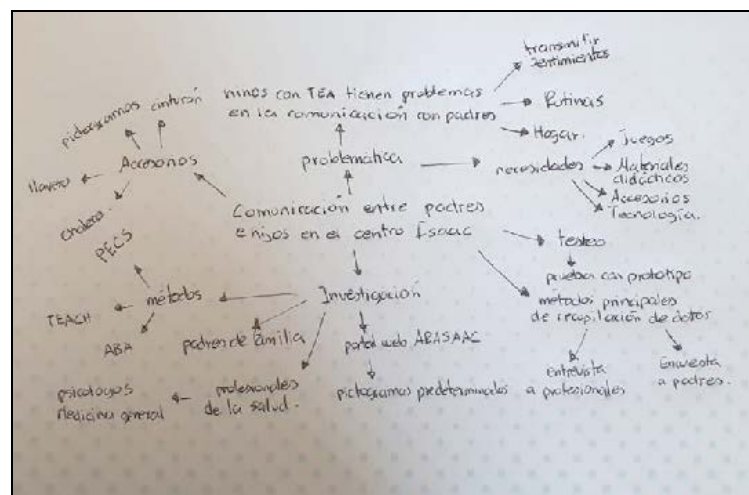 transmitir
sentimientos
niños con TEA tienen problemas
en la comunicación con padres
Rutinas
Hogar.
pictogramas
cinturón
Accesorios
llavero
chaleco
problemática
necesidades
Juegos
Materiales
didácticos
Accesorios
Tecnología.
Comunicación entre padres
e hijos en el centro Isaac
testeo
prueba con prototipo
métodos principales
de recopilación de datos
Entrevista
a profesionales
Encuesta
a padres.
PECS
métodos
TEACH
ABA
Investigación
padres de familia
portal web ARASAAC
pictogramas predeterminados
profesionales
de la salud.
psicologos
Medicina general